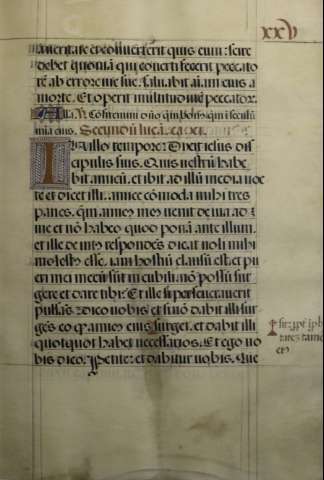 XXV
a veritate et converterit quis eum: scire
debet quoniā qui converti fecerit peccato
rē ab errore vie sue, salvabit aīam eius a
morte. Et operit multitudinē peccator.
Alla. V. Confitemini dño qm̄ bonus: qm̄ ī seculū
mīa eius. Secundū lucā. ca. xi.
In illo tempore: Dixit iesus dis
cipulis suis. Quis vestrū habe
bit amicū, et ibit ad illū media noc
te et dicet illi. amice cōmoda mihi tres
panes. qm̄ amicus meus venit de via ad
me et nō habeo quod ponā ante illum.
et ille de intus respondēs dicat noli mihi
molestus esse. iam hostiū clausū est. et pu
eri mei mecū sūt in cubili. nō possū sur
gere et dare tibi. Et ille si perseveraverit
pulsās. Dico vobis et si nō dabit illi sur
gēs eo qͥ amicus eius
surget, et dabit illi
quotquot habet necessarios. Et ego vo
bis dico. Petite: et dabitur vobis. Que